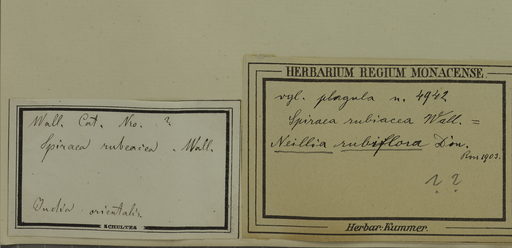 Wall. Cat. Nro. ?
Spiraea rubeacea. Wall.
India orientalis.
SCHULTES
HERBARIUM REGIUM MONACENSE
vgl. plagula n. 4942
Spiraea rubiacea Wall. =
Neillia rubiflora Don.
1903.
??
Herbar. Kummer.